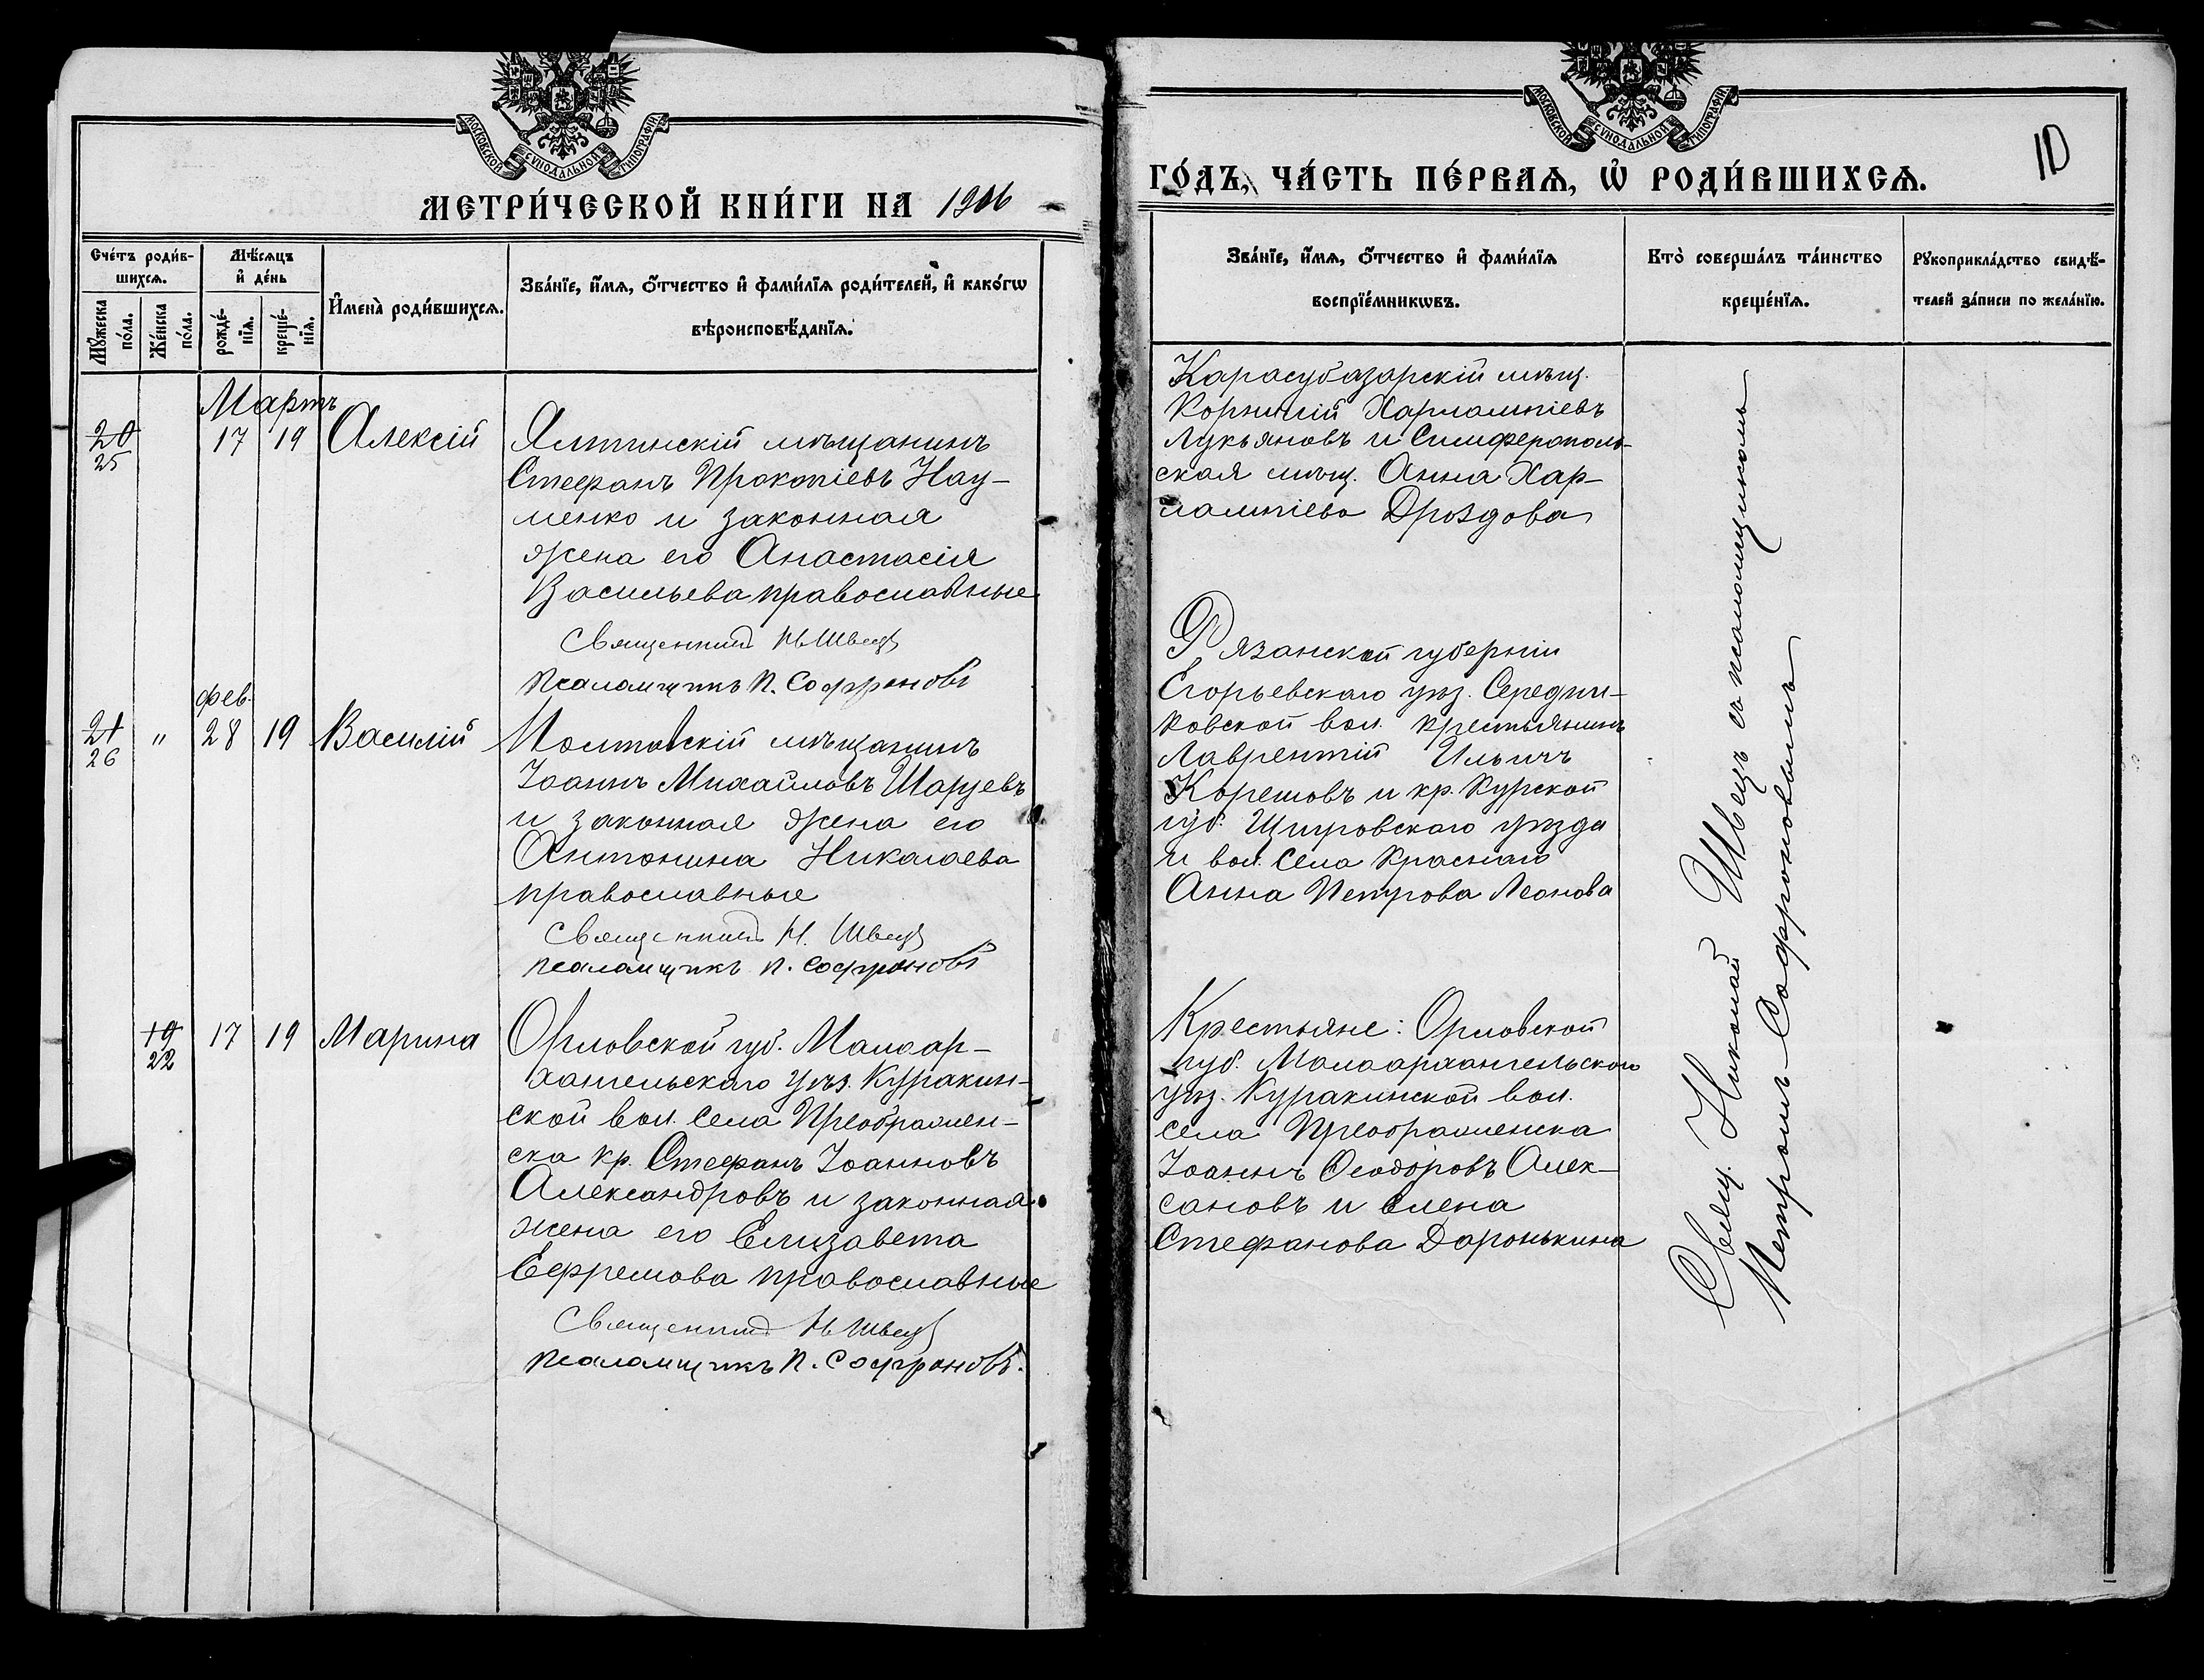 МОСКОВСКОЙ СУНОДАЛЬНОЙ ТИПОГРАФІИ
МЕТРИ́ЧЕСКОЙ КНИ́ГИ НА 1906
Сче́тъ роди́в-
шихсѧ.
Мѣ́сѧцъ
и҆ де́нь
И҆мена̀ роди́вшихсѧ.
Зва́нїе, и҆́мѧ, ѻ҆́тчество и҆ фами́лїѧ роди́телей, и҆ како́гѡ
вѣроисповѣ́данїѧ.
Мꙋ́жеска
по́ла.
Же́нска
по́ла.
рожде́-
нїѧ.
креще́-
нїѧ.
Мартъ
20
25
17
19
Алексій
Ялтинскій мѣщанинъ
Стефанъ Прокопіевъ Нау-
менко и законная
жена его Анастасія
Васильева православные
Священникъ Н. Швецъ
Псаломщикъ П. Софроновъ
фев.
21
26
"
28
19
Василій
Полтавскій мѣщанинъ
Іоаннъ Михайловъ Шаруевъ
и законная жена его
Антонина Николаева
православные
Священникъ Н. Швецъ
псаломщикъ П. Софроновъ
19
22
17
19
Марина
Орловской губ. Малоар-
хангельскаго уѣз. Куракин-
ской вол. села Преображен-
ска кр. Стефанъ Іоанновъ
Александровъ и законная
жена его Елизавета
Ефремова православные
Священникъ Н. Швецъ
псаломщикъ П. Софроновъ.
МОСКОВСКОЙ СУНОДАЛЬНОЙ ТИПОГРАФІИ
10
ГО́ДЪ, ЧА́СТЬ ПЕ́РВАѦ, Ѡ҆ РОДИ́ВШИХСѦ.
Зва́нїе, и҆́мѧ, ѻ҆́тчество и҆ фами́лїѧ
воспрїе́мникѡвъ.
Кто̀ соверша́лъ та́инство
креще́нїѧ.
Рꙋкоприкла́дство свидѣ́-
телей за́писи по жела́нїю.
Карасубазарскій мѣщ.
Корнилій Харлампіевъ
Лукьяновъ и Симферополь-
ская мѣщ. Анна Хар-
лампіева Дроздова
Рязанской губерніи
Егорьевскаго уѣз. Середни-
ковской вол. крестьянинъ
Лаврентій Ильичъ
Корешовъ и кр. Курской
губ. Щигровскаго уѣзда
и вол. села Краснаго
Анна Петрова Леонова
Крестьяне: Орловской
губ. Малоархангельскаго
уѣз. Куракинской вол.
села Преображенска
Іоаннъ Ѳеодоровъ Алек-
сановъ и Елена
Стефанова Доронькина
Свящ. Николай Швецъ съ псаломщикомъ
Петромъ Софроновымъ